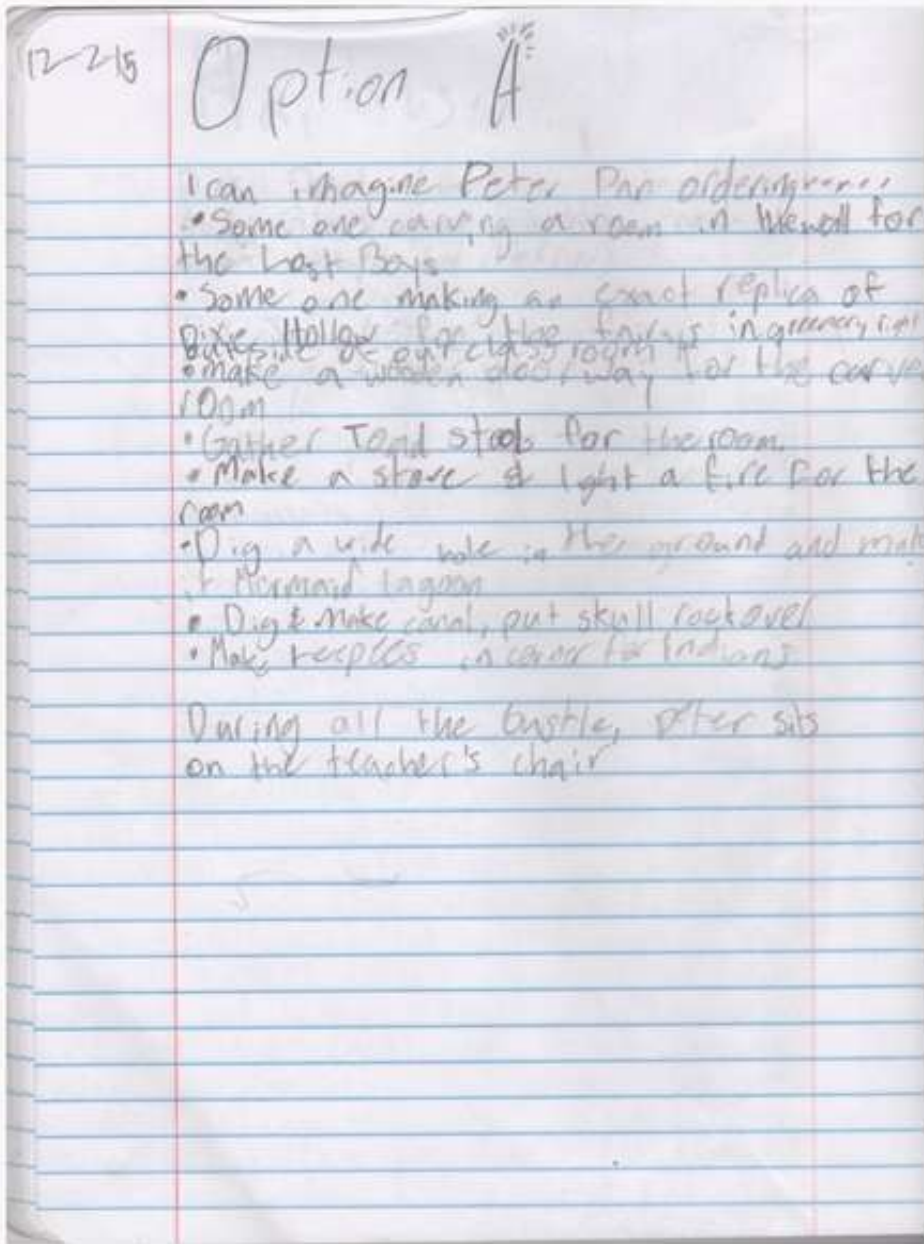 12-2-15
Option A
I can imagine Peter Pan ordering......
• Some one carving a room in the wall for
the Lost Boys
• Some one making an exact replica of
Pixie Hollow for the fairys in greenery right
outside of our classroom
• Make a wooden doorway for the carve
room
• Gather Toad stools for the room.
• Make a stove & light a fire for the
room
• Dig a wide hole in the ground and make
it Mermaid Lagoon
• Dig & Make canal, put skull rock over
• Make teepees in corner for Indians
During all the bustle, Peter sits
on the teacher's chair